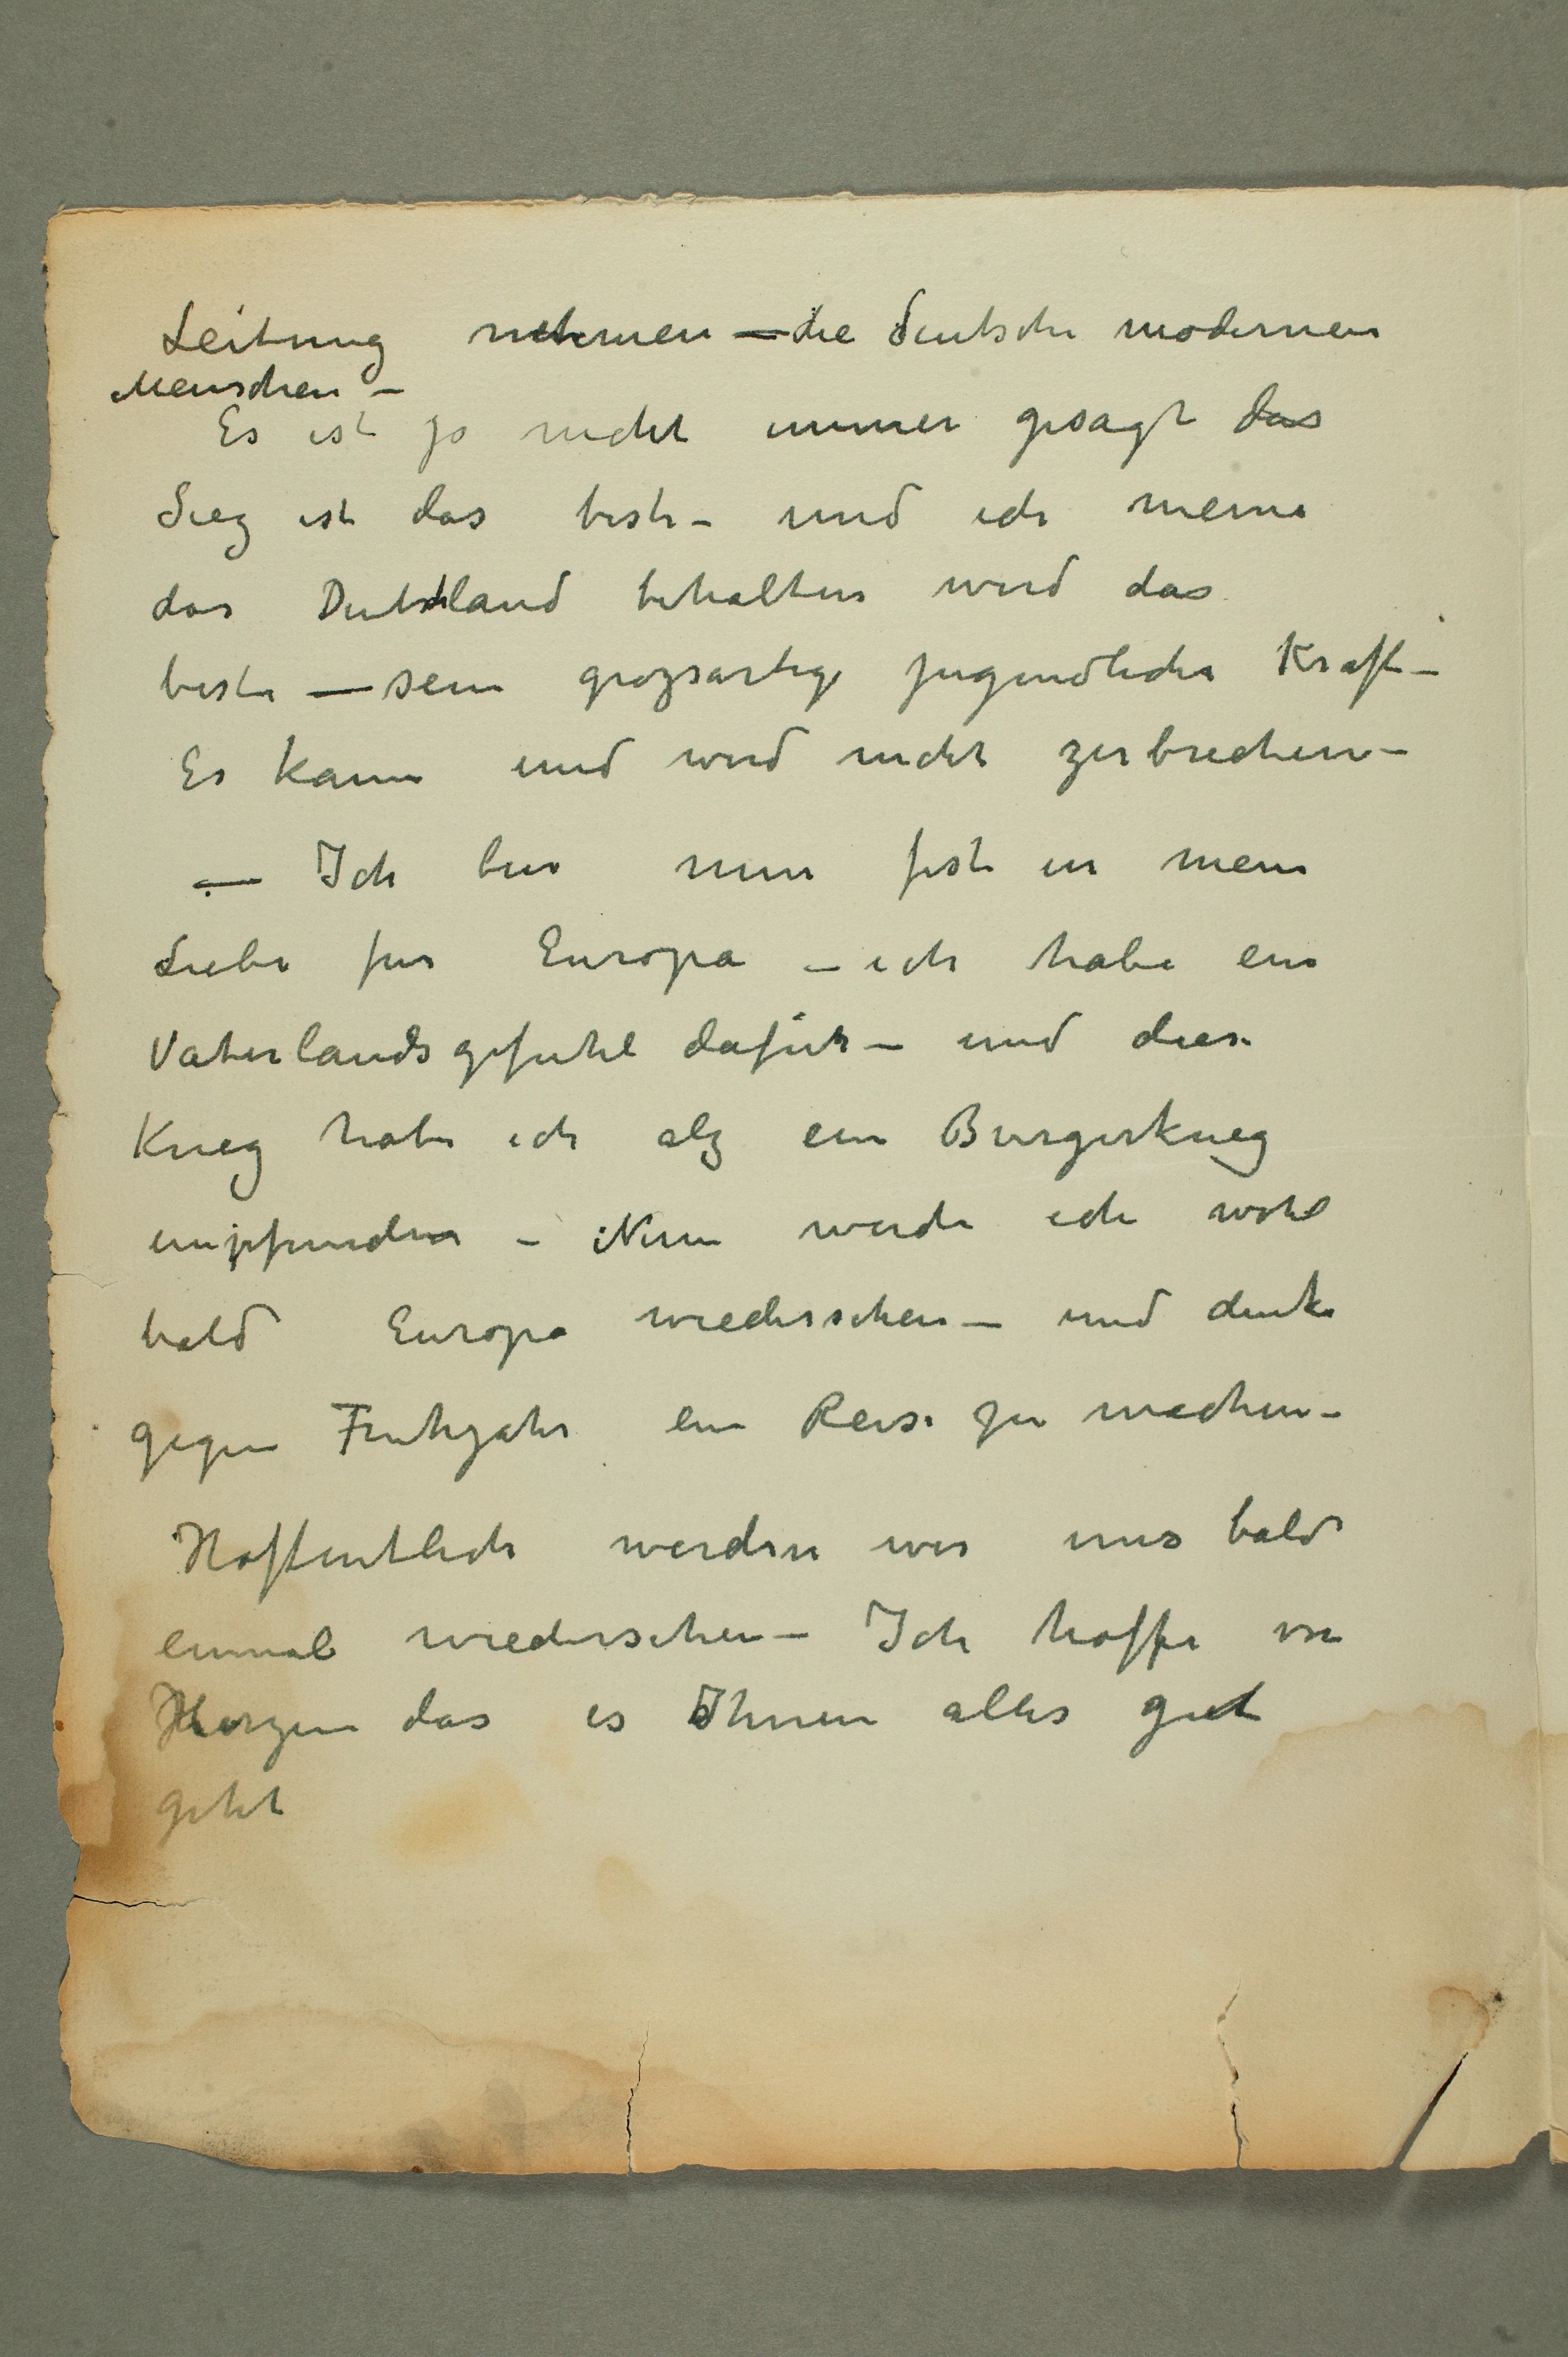 Leitung nehmen — die deutsche modernen
Menschen –
Es ist ja nicht immer gesagt das
Sieg ist das beste – und ich meine
das Deutschland behalten wird das
beste — sein grozsartige jugendliche Kraft –
Es kann und wird nicht zerbrechen –
— Ich bin nun fest in mein
Liebe fur Europa – ich habe ein
Vaterlandsgefuhl dafür – und diese
Krieg habe ich alz ein Burgerkrieg
empfunden – Nun werde ich wohl
bald Europa wiedersehen – und denke
gegen Fruhjahr ein Reise zu machen –
Hoffentlich werden wir uns bald
einmal wiedersehen – Ich hoffe von
Herzen das es Ihnen alles gut
geht